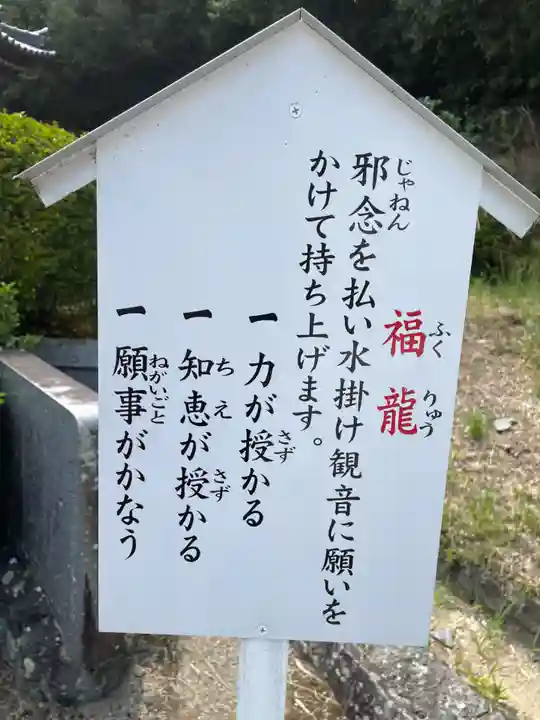 福龍
ふくりゅう
邪念を払い水掛け観音に願いを
じゃねん
かけて持ち上げます。
一 力が授かる
さず
一 知恵が授かる
ちえ さず
一 願事がかなう
ねがいごと